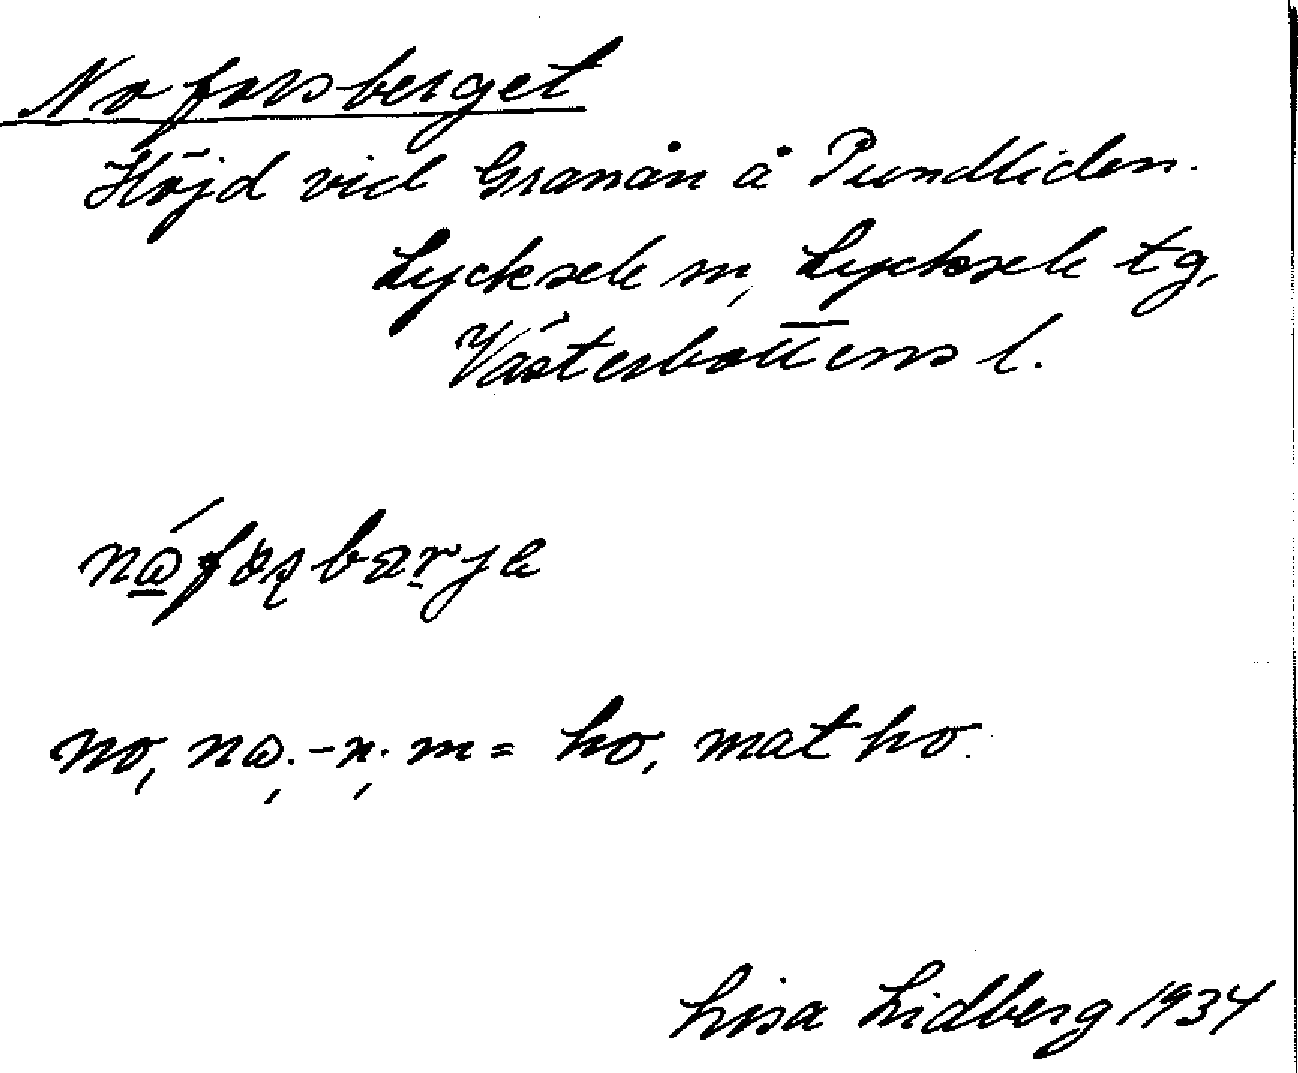 Noforsberget
Höjd vid Granån å Pundliden.
Lycksele m, Lycksele tg,
Västerbottens l.
no, -n. m = ho, matho.
Lisa Lidberg 1934